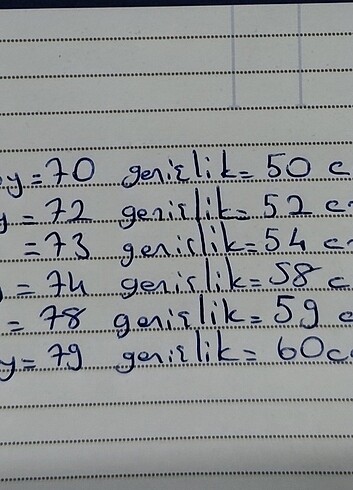 y=70 genişlik=50 c
y=72 genişlik=52 c
=73 genişlik=54 c
=74 genişlik=58 c
=78 genişlik=59 c
y=79 genişlik=60c